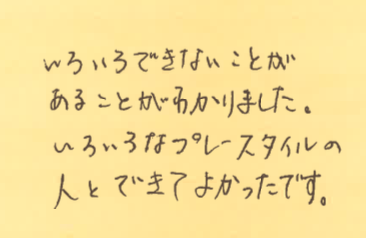 いろいろできないことが
あることがわかりました。
いろいろなプレースタイルの
人とできてよかったです。